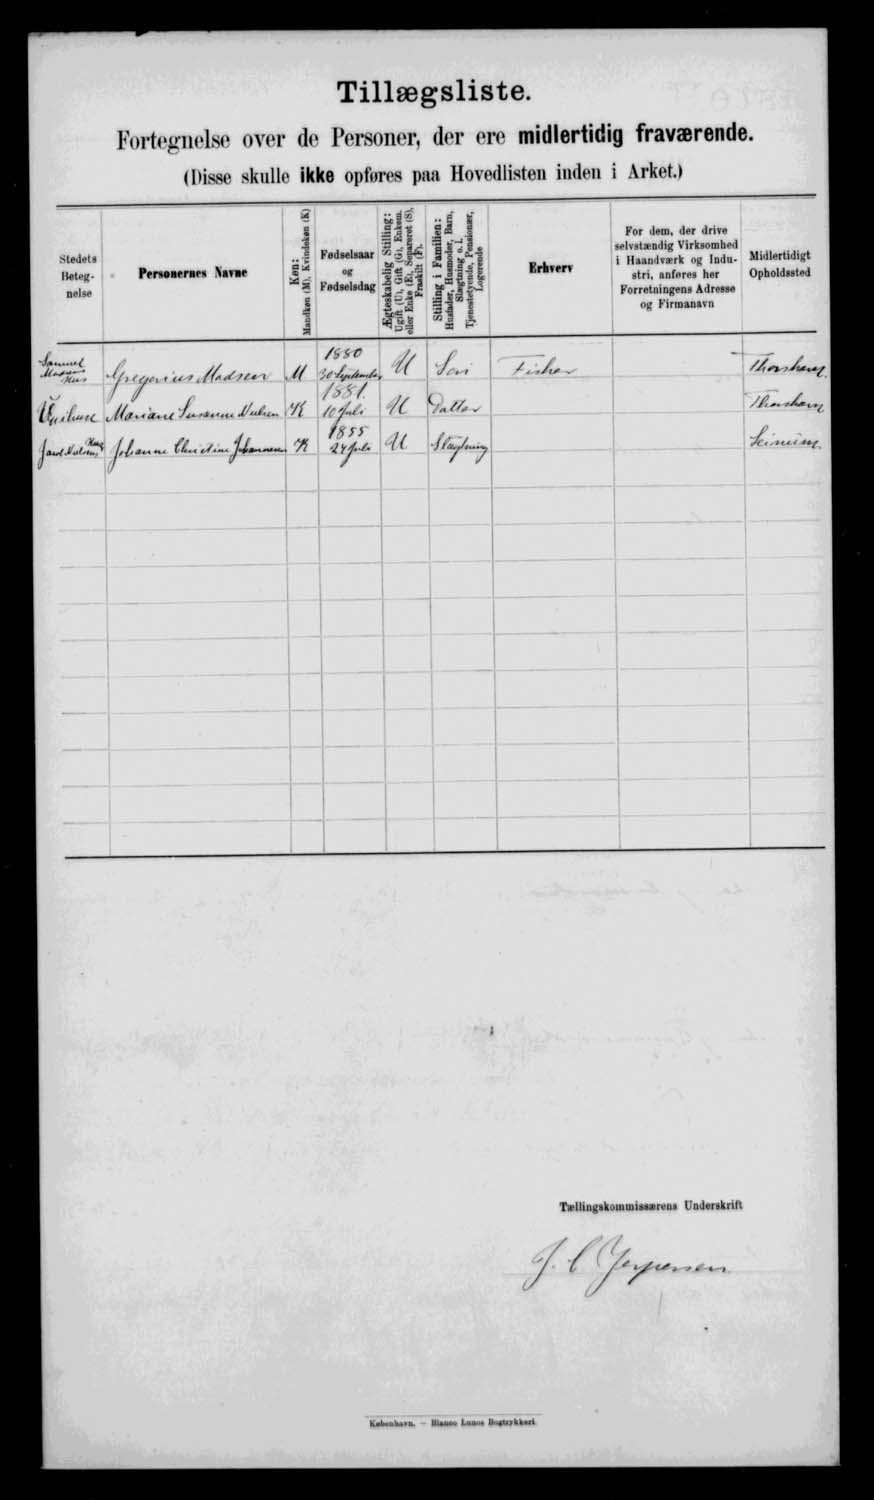 Tillægsliste.
Fortegnelse over de Personer, der ere midlertidig fraværende.
(Disse skulle ikke opføres paa Hovedlisten inden i Arket.)
Stedets Beteg- nelse
Personernes Navne
Køn: Mandkøn (M), Kvindekøn (K)
Fødselsaar og Fødselsdag
Ægteskabelig Stilling: Ugift (U), Gift (G), Enkem. eller Enke (E), Separeret (S), Fraskilt (F).
Stilling i Familien: Husfader, Husmoder, Barn, Slægtning o. l. Tjenestetyende, Pensionær, Logerende
Erhverv
For dem, der drive selvstændig Virksomhed i Haandværk og Indu- stri, anføres her Forretningens Adresse og Firmanavn
Midlertidigt Opholdssted
Samuel Madsens Hus Gregorius Madsen M 1880 30 September U Søn Fisker Thorshavn
Mariane Susanne Nielsen K 1881. 10 Juli U Datter Thorshavn
Johanne Christine Johannesen K 1855 24 Juli U Slægtning
Tællingskommissærens Underskrift
J. C Jespersen
København. — Bianco Lunos Bogtrykkeri.